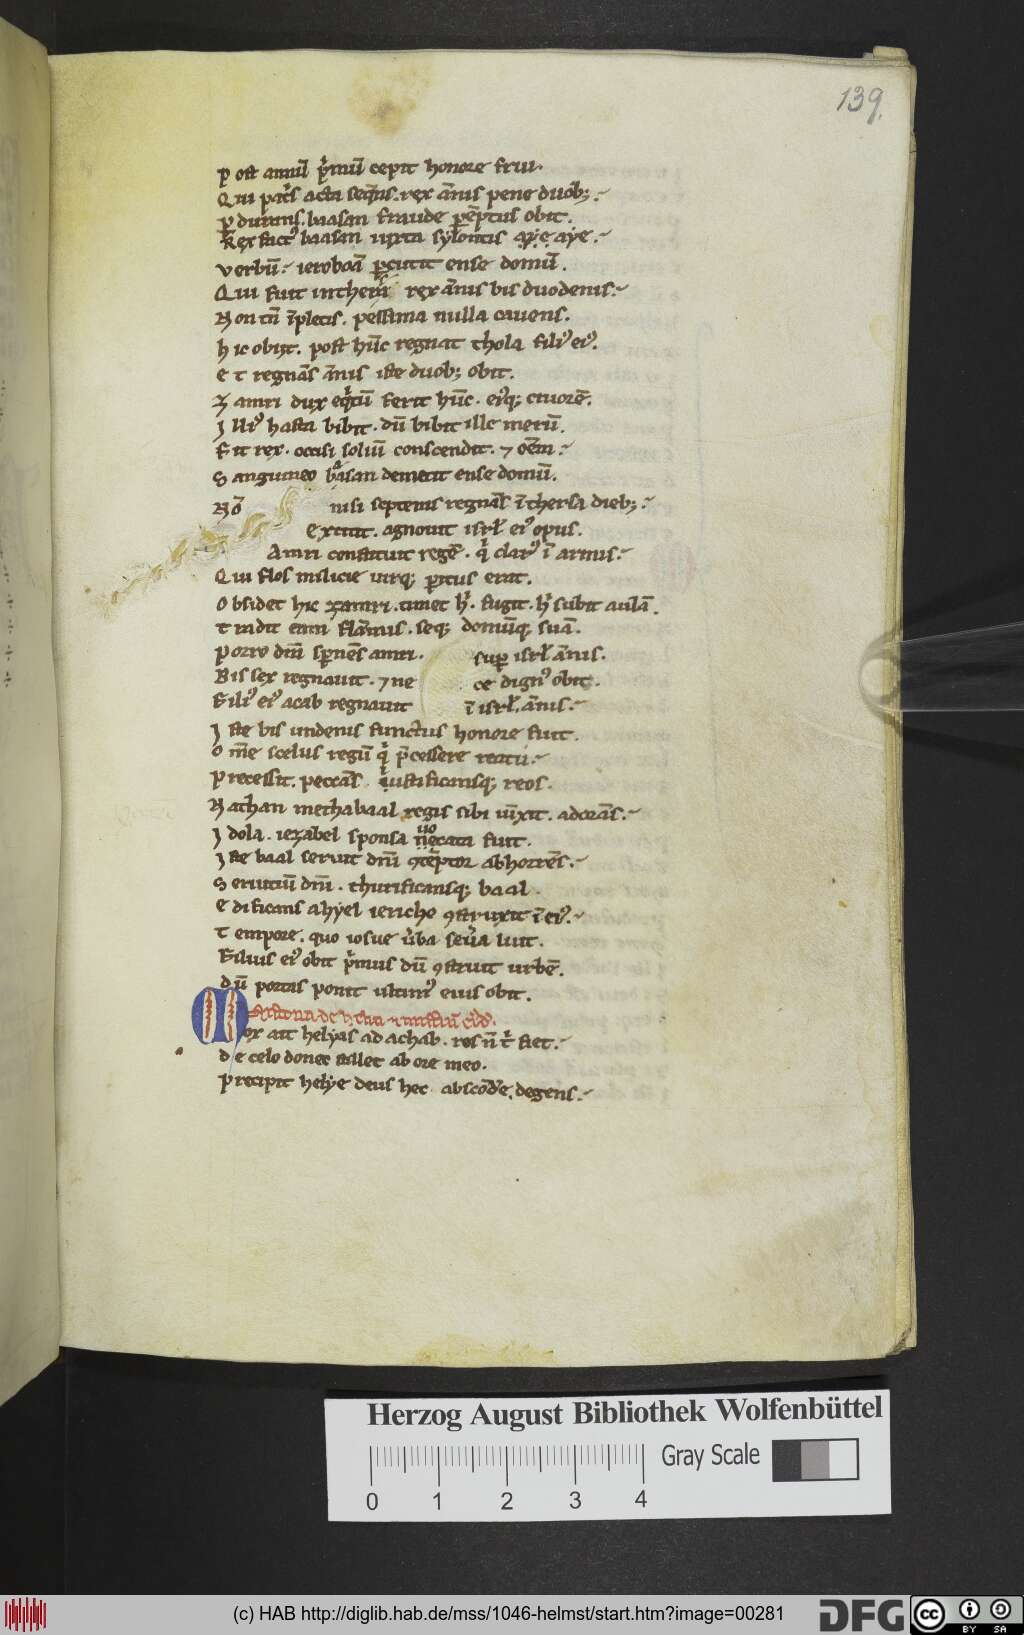 139.
P ost annū p͛mū cepit honore frui.
Q ui pat͛s acta seqᷓns. rex ānis pene duob;
P durans. baasan fraude pēptus obit.
R ex fact᷒ baasan iuxta sylonitis
verbū. ieroboā pcutit ense domū.
Q ui fuit in rex ānis bis duodenis.
N on tn̄ īpletis. pessima nulla cavens.
h ic obijt. post hūc regnat thola fili᷒ ei᷒.
E t regnās ānis iste duob; obit.
Z amri dux eq͛tū ferit hūc. ei᷒q; cruorē.
I lli᷒ hasta bibit. dū bibit ille merū.
F it rex. occisi soliū conscendit. ⁊ oēm
S anguineo basan demetit ense domū.
N ō nisi septenis regnās ī thersa dieb;
Extitit. agnovit isrł ei᷒ opus.
Amri constituit regē. q͛ clar᷒ ī armis
Q ui flos milicie virq; pitus erat.
O bsidet hic zamri. timet h͛. fugit. h͛ subit aulā.
T radit eam flāmis. seq; domūq; suā.
P orro dm̄ spnēs amri. sup isrł ānis.
B is sex regnavit. ⁊ ne ce dign᷒ obit.
F ili᷒ ei᷒ acab regnavit ī isrł. ānis.
I ste bis undenis functus honore fuit.
O m̄e scelus regū q͛ p̄cessere reatu
P recessit. peccās iustificansq; reos.
N athan methabaal regis sibi iūxit. adorās.
I dola. iezabel sponsa necata fuit.
I ste baal servit dm̄ ꝯtēptor abhorrēs.
S ervitiū dm̄. thurificansq; baal.
E dificans ahyel iericho ꝯstruxit ī ei᷒.
T empore. quo iosue v͛ba seva luit.
Filius ei᷒ obit p͛mus dū ꝯstruit urbē.
dū portas ponit ultim᷒ eius obit.
M ox ait helyas ad achab. ros n̄ t͛ fiet.
d e celo donec stillet ab ore meo.
P recipit helye deus hec abscōde. degens.
Herzog August Bibliothek Wolfenbüttel
Gray Scale
0 1 2 3 4
(c) HAB http://diglib.hab.de/mss/1046-helmst/start.htm?image=00281
DFG
cc BY SA